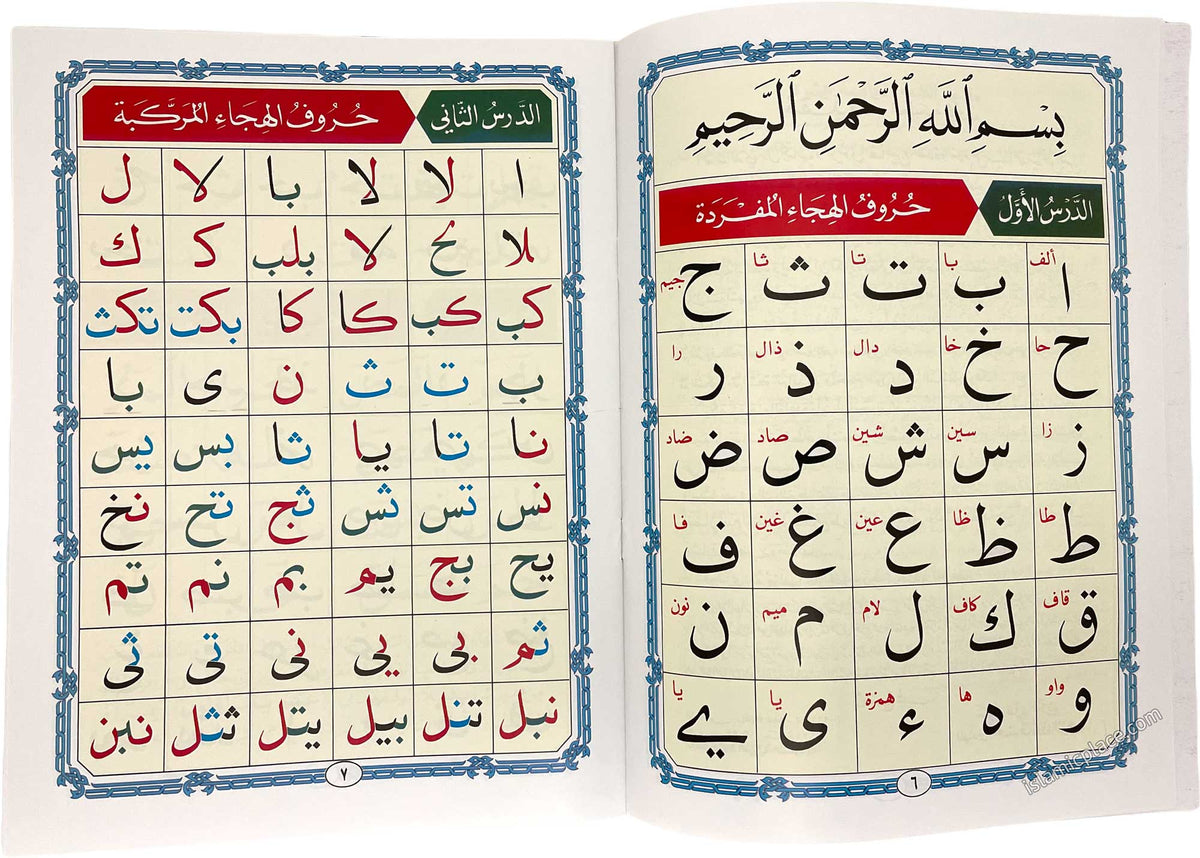 بِسْمِ ٱللَّهِ ٱلرَّحْمَٰنِ ٱلرَّحِيمِ
الدَّرْسُ الأَوَّلُ حُرُوفُ الهِجَاءِ المُفْرَدَة
ألف ا با ب تا ت ثا ث جيم ج
حا ح خا خ دال د ذال ذ را ر
زا ز سين س شين ش صاد ص ضاد ض
طا ط ظا ظ عين ع غين غ فا ف
قاف ق كاف ك لام ل ميم م نون ن
واو و ها ه همزة ء يا ى يا ے
٦
islamicplace.com
الدَّرْسُ الثَّانِي حُرُوفُ الهِجَاءِ المُرَكَّبَة
ا لا لا با لا ل
بلا بح لا بلب ك ك
كب كب كا كا بكت تكث
ب ت ث ن ى با
نا تا يا ثا بس يس
نس تس ثس ثج تح نخ
يح بج يم بم نم تم
ثم بى يى نى تى ثى
نبل تنل بيل يتل ثثل نبن
٧